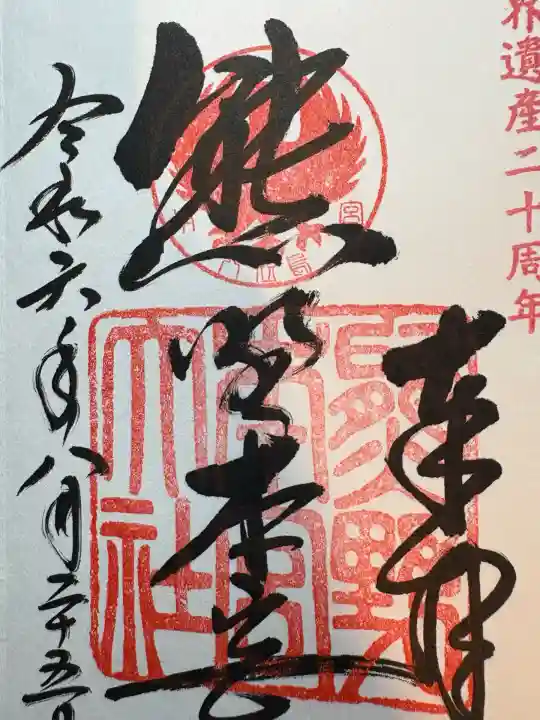 界遺産二十周年
奉拝
熊野本宮
熊野本宮大社
令和六年八月二十五日